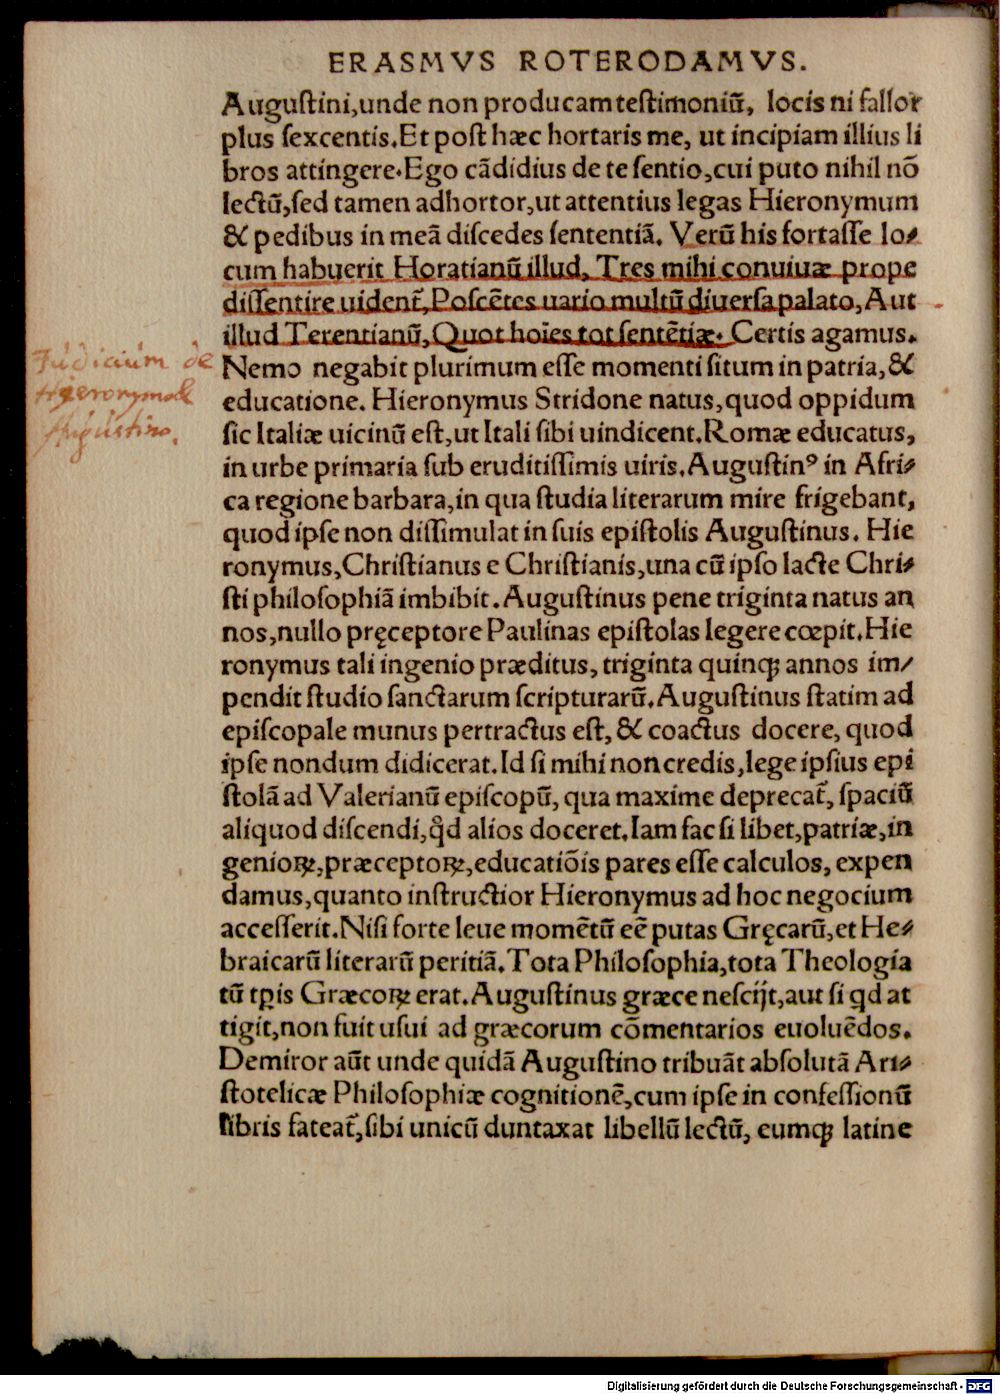 ERASMVS ROTERODAMVS.
Auguſtini,unde non producam teſtimoniũ, locis ni fallor
plus ſexcentis.Et poſt hæc hortaris me, ut incipiam illius li
bros attingere.Ego cãdidius de te ſentio,cui puto nihil nõ
lectũ,ſed tamen adhortor,ut attentius legas Hieronymum
& pedibus in meã diſcedes ſententiã. Verũ his fortaſſe lo⸗
cum habuerit Horatianũ illud, Tres mihi conuiuæ prope
diſſentire uident᷑,Poſcẽtes uario multũ diuerſa palato,Aut
illud Terentianũ,Quot hoĩes tot ſentẽtiæ. Certis agamus.
Iudicium de
Hieronymo &
Augustino.
Nemo negabit plurimum eſſe momenti ſitum in patria,&
educatione. Hieronymus Stridone natus,quod oppidum
ſic Italiæ uicinũ eſt,ut Itali ſibi uindicent.Romæ educatus,
in urbe primaria ſub eruditiſſimis uiris.Auguſtinꝰ in Afri⸗
ca regione barbara,in qua ſtudia literarum mire frigebant,
quod ipſe non diſſimulat in ſuis epiſtolis Auguſtinus. Hie
ronymus,Chriſtianus e Chriſtianis,una cũ ipſo lacte Chri⸗
ſti philoſophiã imbibit.Auguſtinus pene triginta natus an
nos,nullo pręceptore Paulinas epiſtolas legere cœpit.Hie
ronymus tali ingenio præditus,triginta quinqꝫ annos im/
pendit ſtudio ſanctarum ſcripturarũ.Auguſtinus ſtatim ad
epiſcopale munus pertractus eſt,& coactus docere,quod
ipſe nondum didicerat.Id ſi mihi non credis,lege ipſius epi
ſtolã ad Valerianũ epiſcopũ,qua maxime deprecat᷑,ſpaciũ
aliquod diſcendi,qͦd alios doceret.Iam fac ſi libet,patriæ,in
genioꝝ,præceptoꝝ,educatiõis pares eſſe calculos, expen
damus,quanto inſtructior Hieronymus ad hoc negocium
acceſſerit.Niſi forte leue momẽtũ eẽ putas Gręcarũ,et He⸗
braicarũ literarũ peritiã.Tota Philoſophia,tota Theologia
tũ tꝑis Græcoꝝ erat.Auguſtinus græce neſcijt,aut ſi qd at
tigit,non fuit uſui ad græcorum cõmentarios euoluẽdos.
Demiror aũt unde quidã Auguſtino tribuãt abſolutã Ari⸗
ſtotelicæ Philoſophiæ cognitionẽ,cum ipſe in confeſſionũ
libris fateat᷑,ſibi unicũ duntaxat libellũ lectũ, eumqꝫ latine
Digitalisierung gefördert durch die Deutsche Forschungsgemeinschaft - DFG